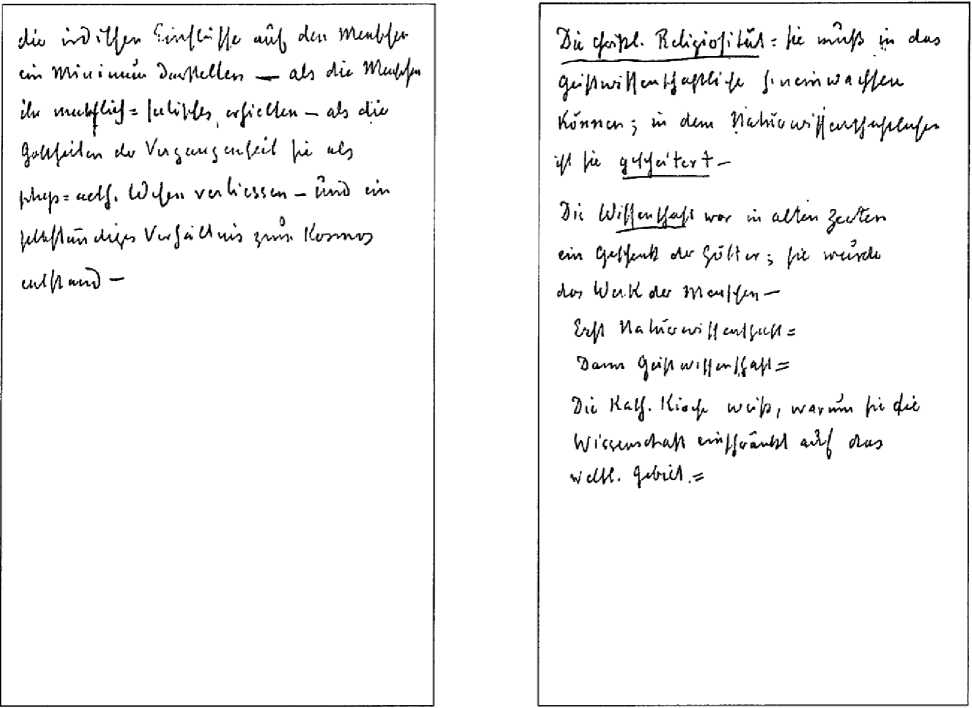 die irdischen Einflüsse auf den Menschen
ein Minimum darstellen — als die Menschen
ihr menschlich = seelisches, erhielten — als die
Gottheiten der Vergangenheit sie als
phys = aeth. Wesen verliessen — und ein
selbständiges Verhältnis zum Kosmos
entstand —
Die christl. Religiosität = sie muß in das
Geistwissenschaftliche hineinwachsen
können; in dem Naturwissenschaftlichen
ist sie gescheitert —
Die Wissenschaft war in alten Zeiten
ein Geschenk der Götter; sie wurde
das Werk der Menschen —
Erst Naturwissenschaft =
Dann Geistwissenschaft =
Die Kath. Kirche weiß, warum sie die
Wissenschaft einschränkt auf das
weltl. Gebiet. =